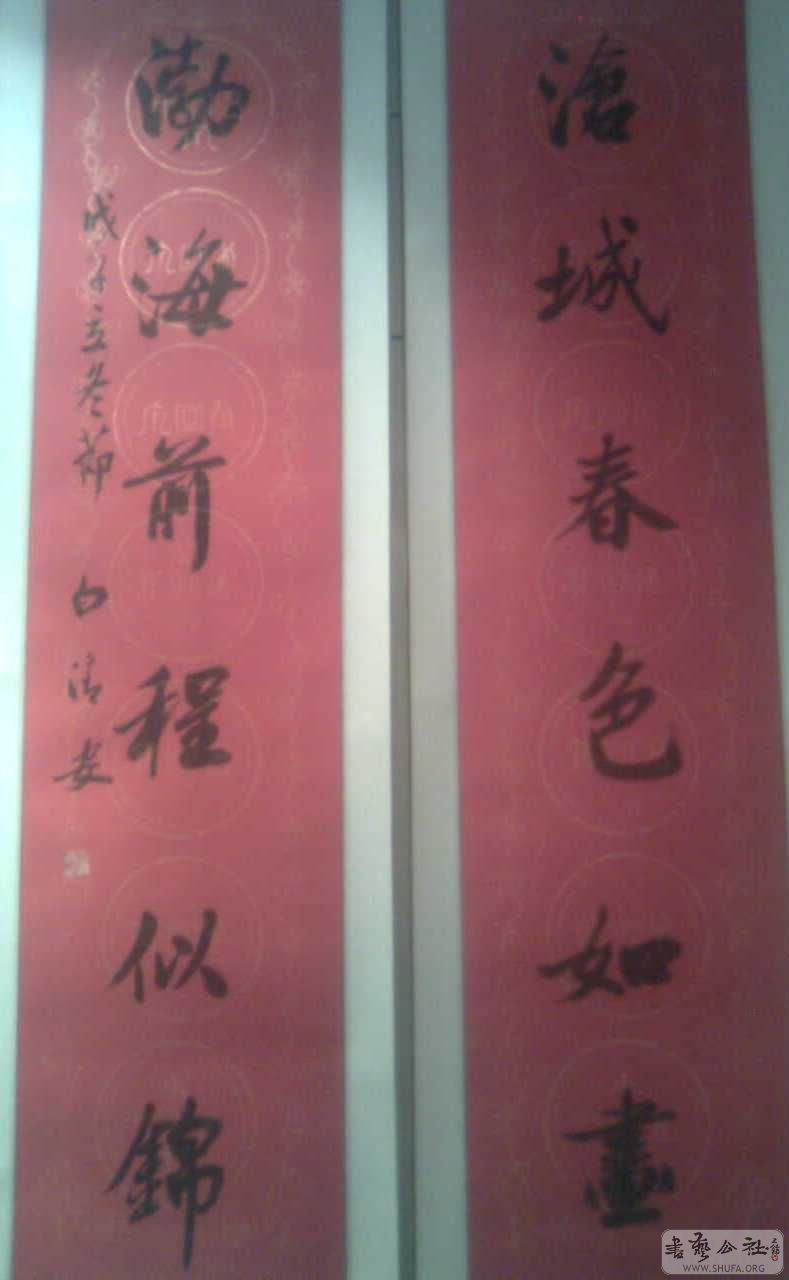 滄城春色如畫
渤海前程似錦
戊子立冬節 白清安
書藝公社
WWW.SHUFA.ORG